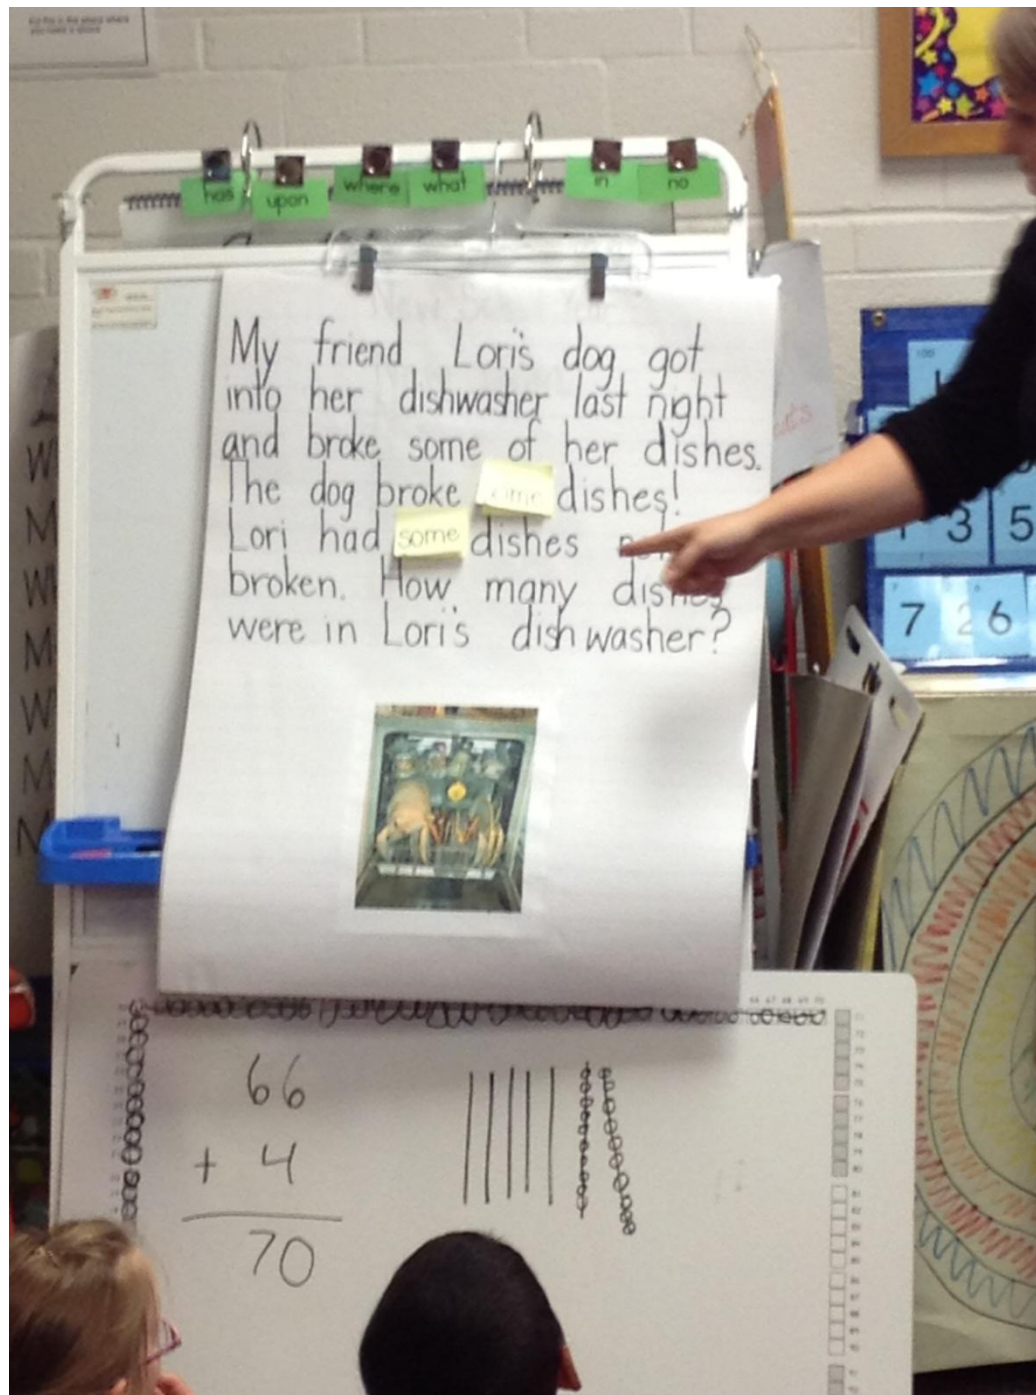 has upon where what in no
My friend Lori's dog got
into her dishwasher last night
and broke some of her dishes.
The dog broke some dishes!
Lori had some dishes
broken. How many dishes
were in Lori's dishwasher?
66
+ 4
70
3 5
7 2 6